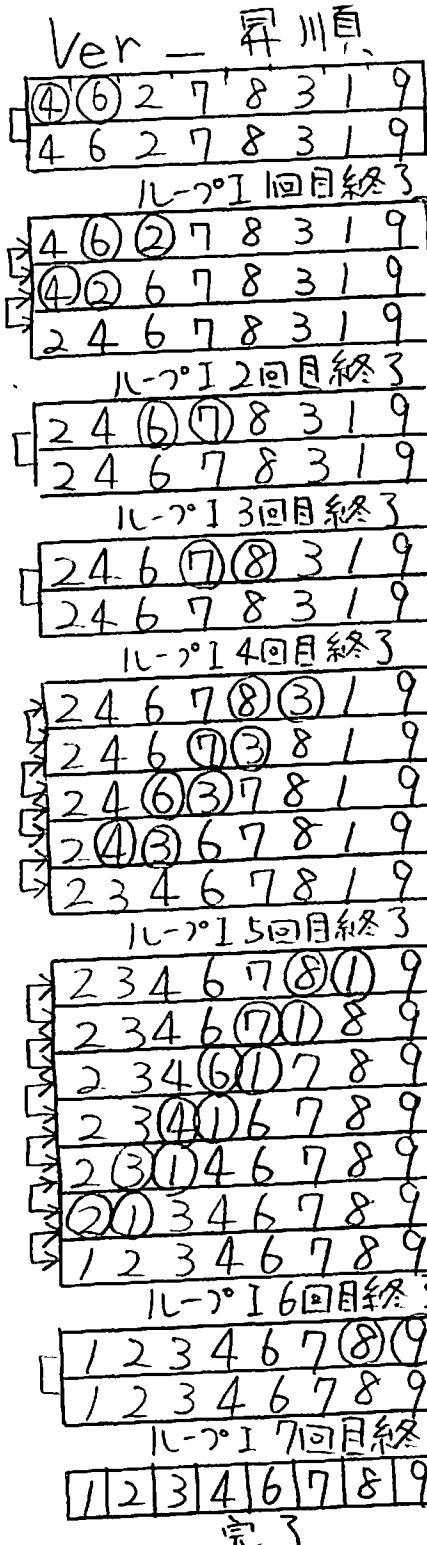 Ver _ 昇順
4 6 2 7 8 3 1 9
4 6 2 7 8 3 1 9
ループI 1回目終了
4 6 2 7 8 3 1 9
4 2 6 7 8 3 1 9
2 4 6 7 8 3 1 9
ループI 2回目終了
2 4 6 7 8 3 1 9
2 4 6 7 8 3 1 9
ループI 3回目終了
2 4 6 7 8 3 1 9
2 4 6 7 8 3 1 9
ループI 4回目終了
2 4 6 7 8 3 1 9
2 4 6 7 3 8 1 9
2 4 6 3 7 8 1 9
2 4 3 6 7 8 1 9
2 3 4 6 7 8 1 9
ループI 5回目終了
2 3 4 6 7 8 1 9
2 3 4 6 7 1 8 9
2 3 4 6 1 7 8 9
2 3 4 1 6 7 8 9
2 3 1 4 6 7 8 9
2 1 3 4 6 7 8 9
1 2 3 4 6 7 8 9
ループI 6回目終
1 2 3 4 6 7 8 9
1 2 3 4 6 7 8 9
ループI 7回目終
1 2 3 4 6 7 8 9
完了